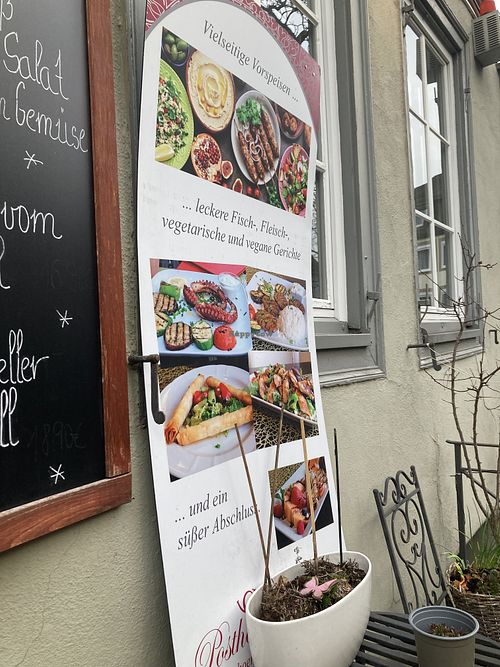 Salat
Gemüse
vom
Vielseitige Vorspeisen ...
... leckere Fisch-, Fleisch-,
vegetarische und vegane Gerichte
... und ein
süßer Abschluss.